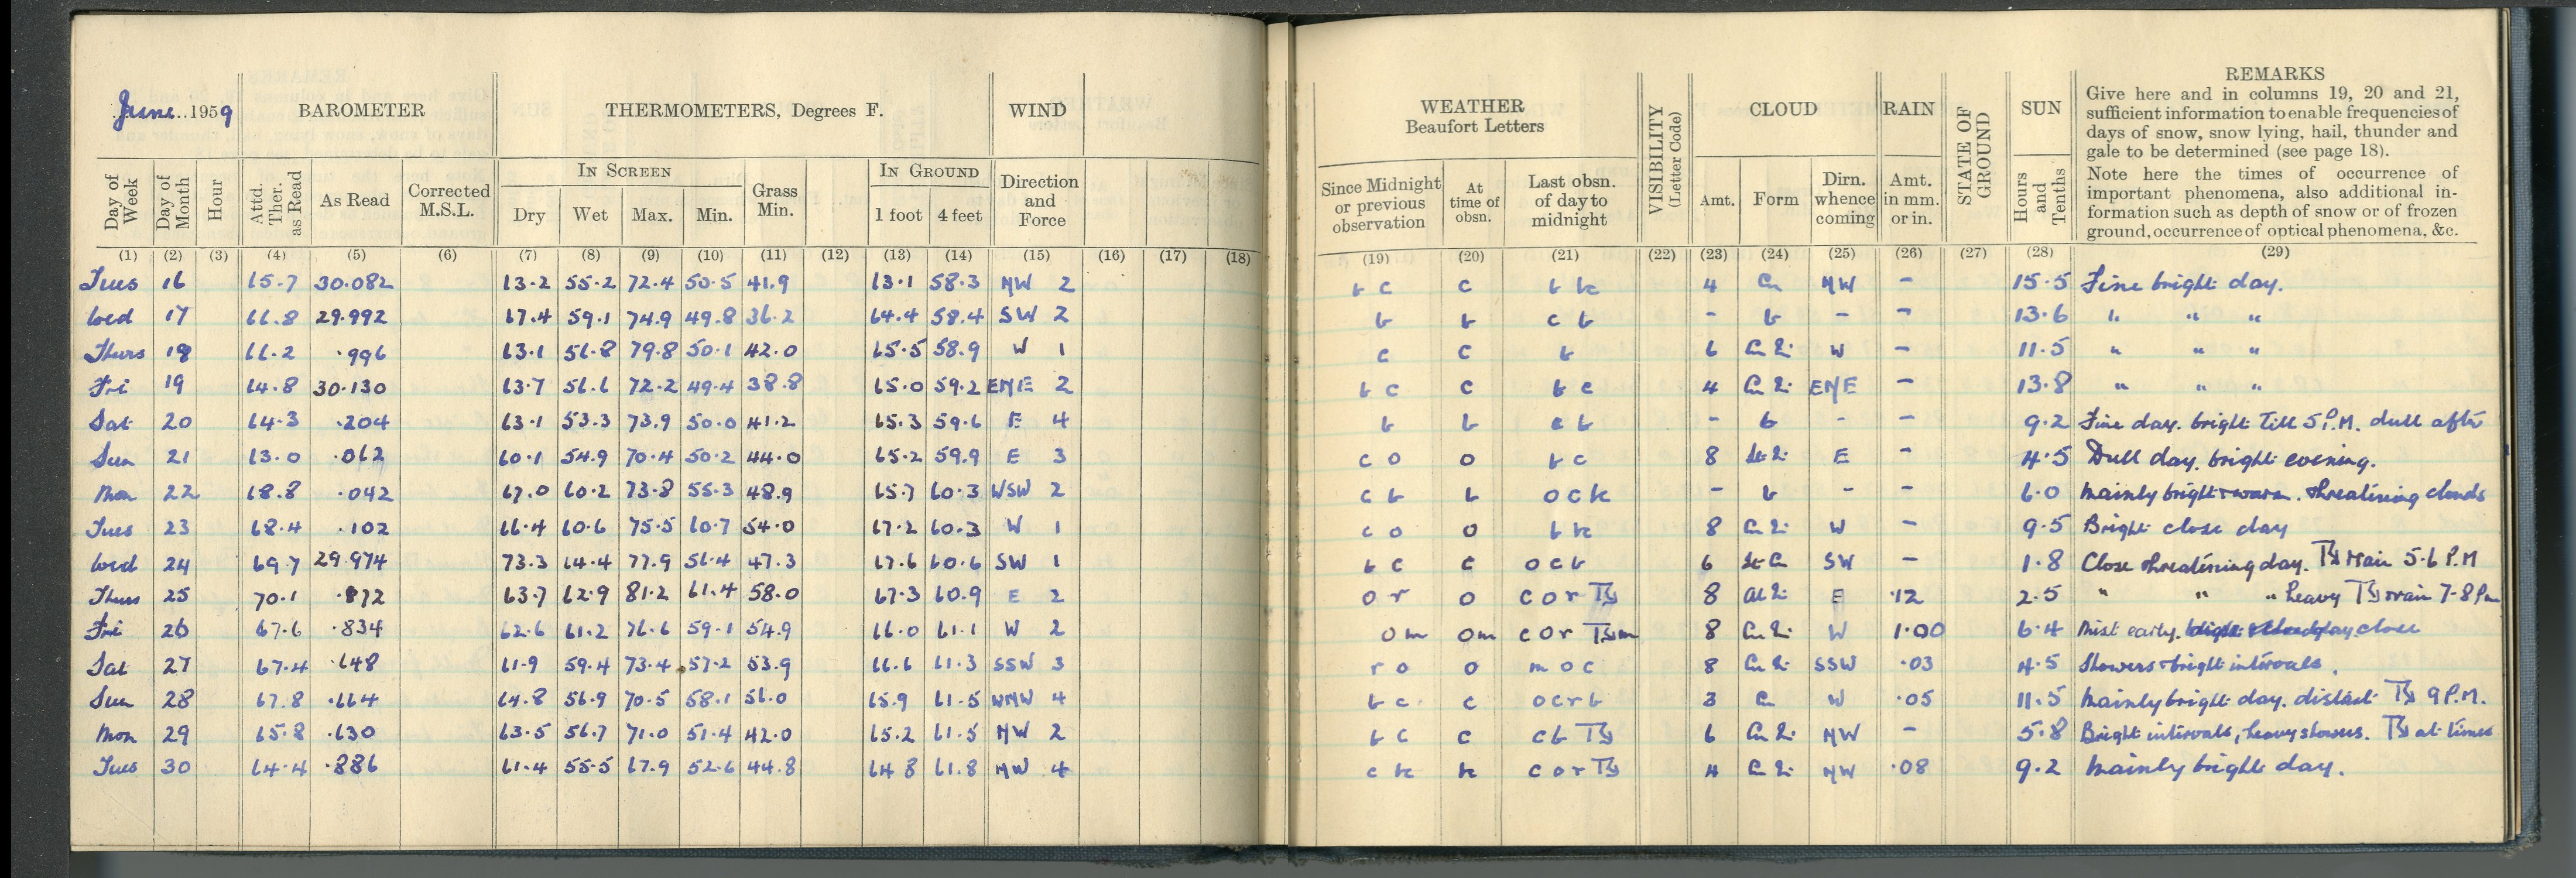 June 1959
BAROMETER
THERMOMETERS, Degrees F.
WIND
IN SCREEN
IN GROUND
Day of Week
Day of Month
Hour
Attd. Ther. as Read
As Read
Corrected M.S.L.
Dry Wet Max. Min.
Grass Min.
1 foot 4 feet
Direction and Force
(1) (2) (3) (4) (5) (6) (7) (8) (9) (10) (11) (12) (13) (14) (15) (16) (17) (18)
Tues 16 65.7 30.082 63.2 55.2 72.4 50.5 41.9 63.1 58.3 NW 2
Wed 17 66.8 29.992 67.4 59.1 74.9 49.8 36.2 64.4 58.4 SW 2
Thurs 18 66.2 .996 63.1 56.8 79.8 50.1 42.0 65.5 58.9 W 1
Fri 19 64.8 30.130 63.7 56.6 72.2 49.4 38.8 65.0 59.2 ENE 2
Sat 20 64.3 .204 63.1 53.3 73.9 50.0 41.2 65.3 59.6 E 4
Sun 21 63.0 .062 60.1 54.9 70.4 50.2 44.0 65.2 59.9 E 3
Mon 22 68.8 .042 67.0 60.2 73.8 55.3 48.9 65.7 60.3 WSW 2
Tues 23 68.4 .102 66.4 60.6 75.5 60.7 54.0 67.2 60.3 W 1
Wed 24 69.7 29.974 73.3 64.4 77.9 56.4 47.3 67.6 60.6 SW 1
Thurs 25 70.1 .872 63.7 62.9 81.2 61.4 58.0 67.3 60.9 E 2
Fri 26 67.6 .834 62.6 61.2 76.6 59.1 54.9 66.0 61.1 W 2
Sat 27 67.4 .648 61.9 59.4 73.4 57.2 53.9 66.6 61.3 SSW 3
Sun 28 67.8 .664 64.8 56.9 70.5 58.1 56.0 65.9 61.5 WNW 4
Mon 29 65.8 .630 63.5 56.7 71.0 51.4 42.0 65.2 61.5 NW 2
Tues 30 64.4 .886 61.4 55.5 67.9 52.6 44.8 64.8 61.8 NW 4
WEATHER
Beaufort Letters
VISIBILITY (Letter Code)
CLOUD
RAIN
STATE OF GROUND
SUN
REMARKS
Give here and in columns 19, 20 and 21,
sufficient information to enable frequencies of
days of snow, snow lying, hail, thunder and
gale to be determined (see page 18).
Note here the times of occurrence of
important phenomena, also additional in-
formation such as depth of snow or of frozen
ground, occurrence of optical phenomena, &c.
Since Midnight or previous observation
At time of obsn.
Last obsn. of day to midnight
Amt.
Form
Dirn. whence coming
Amt. in mm. or in.
Hours and Tenths
(19) (20) (21) (22) (23) (24) (25) (26) (27) (28) (29)
b c c b bc 4 Cu NW - 15.5 Fine bright day.
b b c b - b - - 13.6 " " "
c c b 6 Cu W - 11.5 " " "
b c c b c 4 Cu ENE - 13.8 " " "
b b c b - b - - 9.2 Fine day. bright till 5 P.M. dull after
c o o b c 8 E - 4.5 Dull day. bright evening.
c b b o c - b - - 6.0 Mainly bright + warm. threatining clouds
c o o b 8 Cu W - 9.5 Bright close day
b c c o c b 6 St Cu SW - 1.8 Close threatining day. Rain 5-6 P.M
o r o c o r 8 E .12 2.5 " " " heavy rain 7-8 Pm
o m o m c o r m 8 Cu W 1.00 6.4 Mist early. close
r o o m o c 8 Cu SSW .03 4.5 Showers + bright intervals.
b c c o c r b 3 Cu W .05 11.5 Mainly bright day. distant 9 P.M.
b c c c b 6 Cu NW - 5.8 Bright intervals, heavy showers. at times
c c o r 4 Cu NW .08 9.2 Mainly bright day.